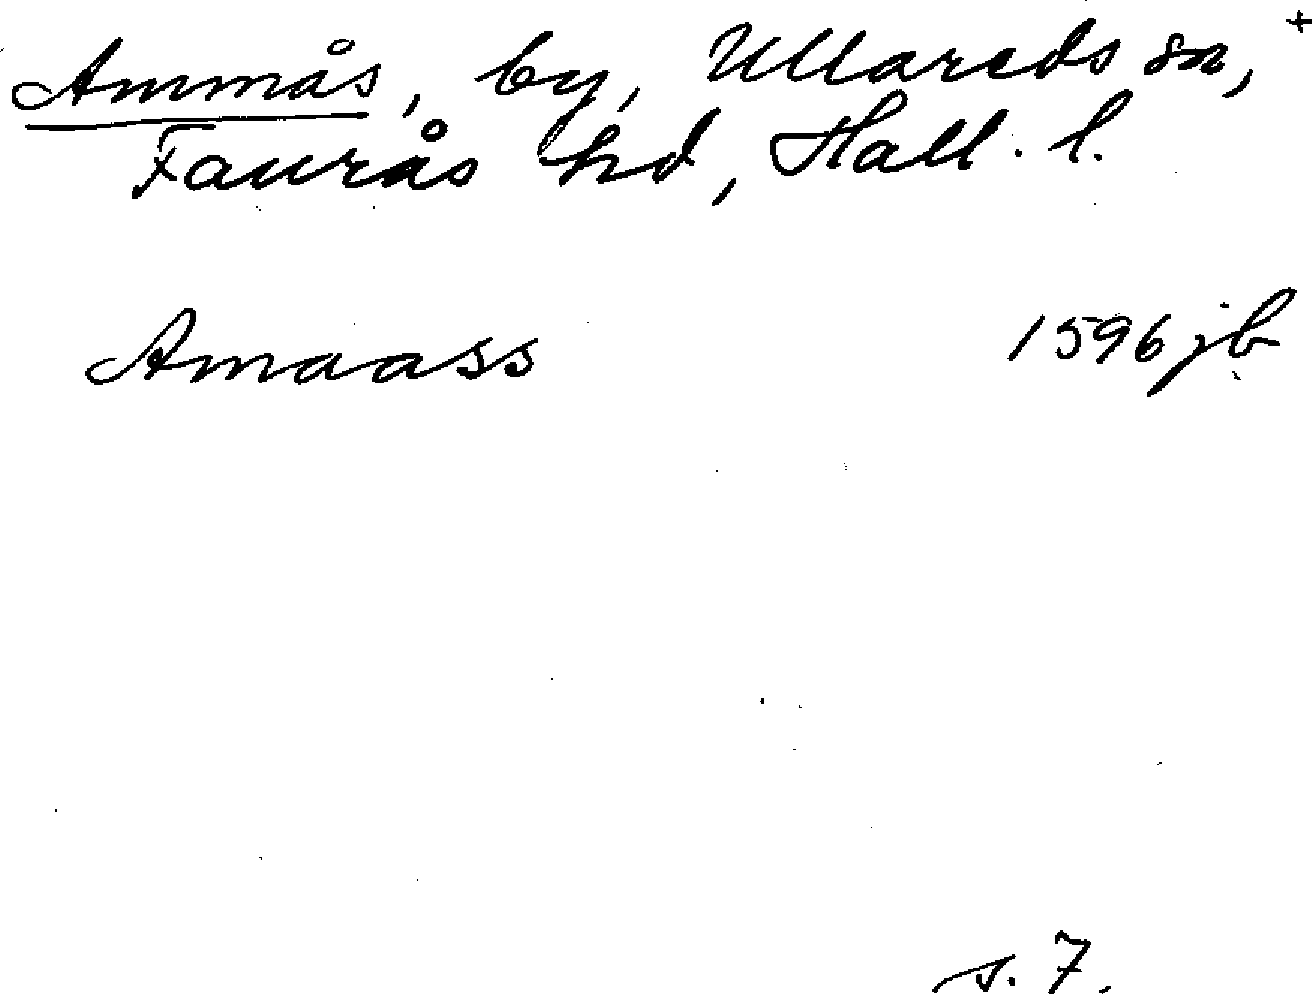 Ammås, by, Ullareds sn, +
Faurås hd, Hall. l.
Amaass 1596 jb
s. 7.